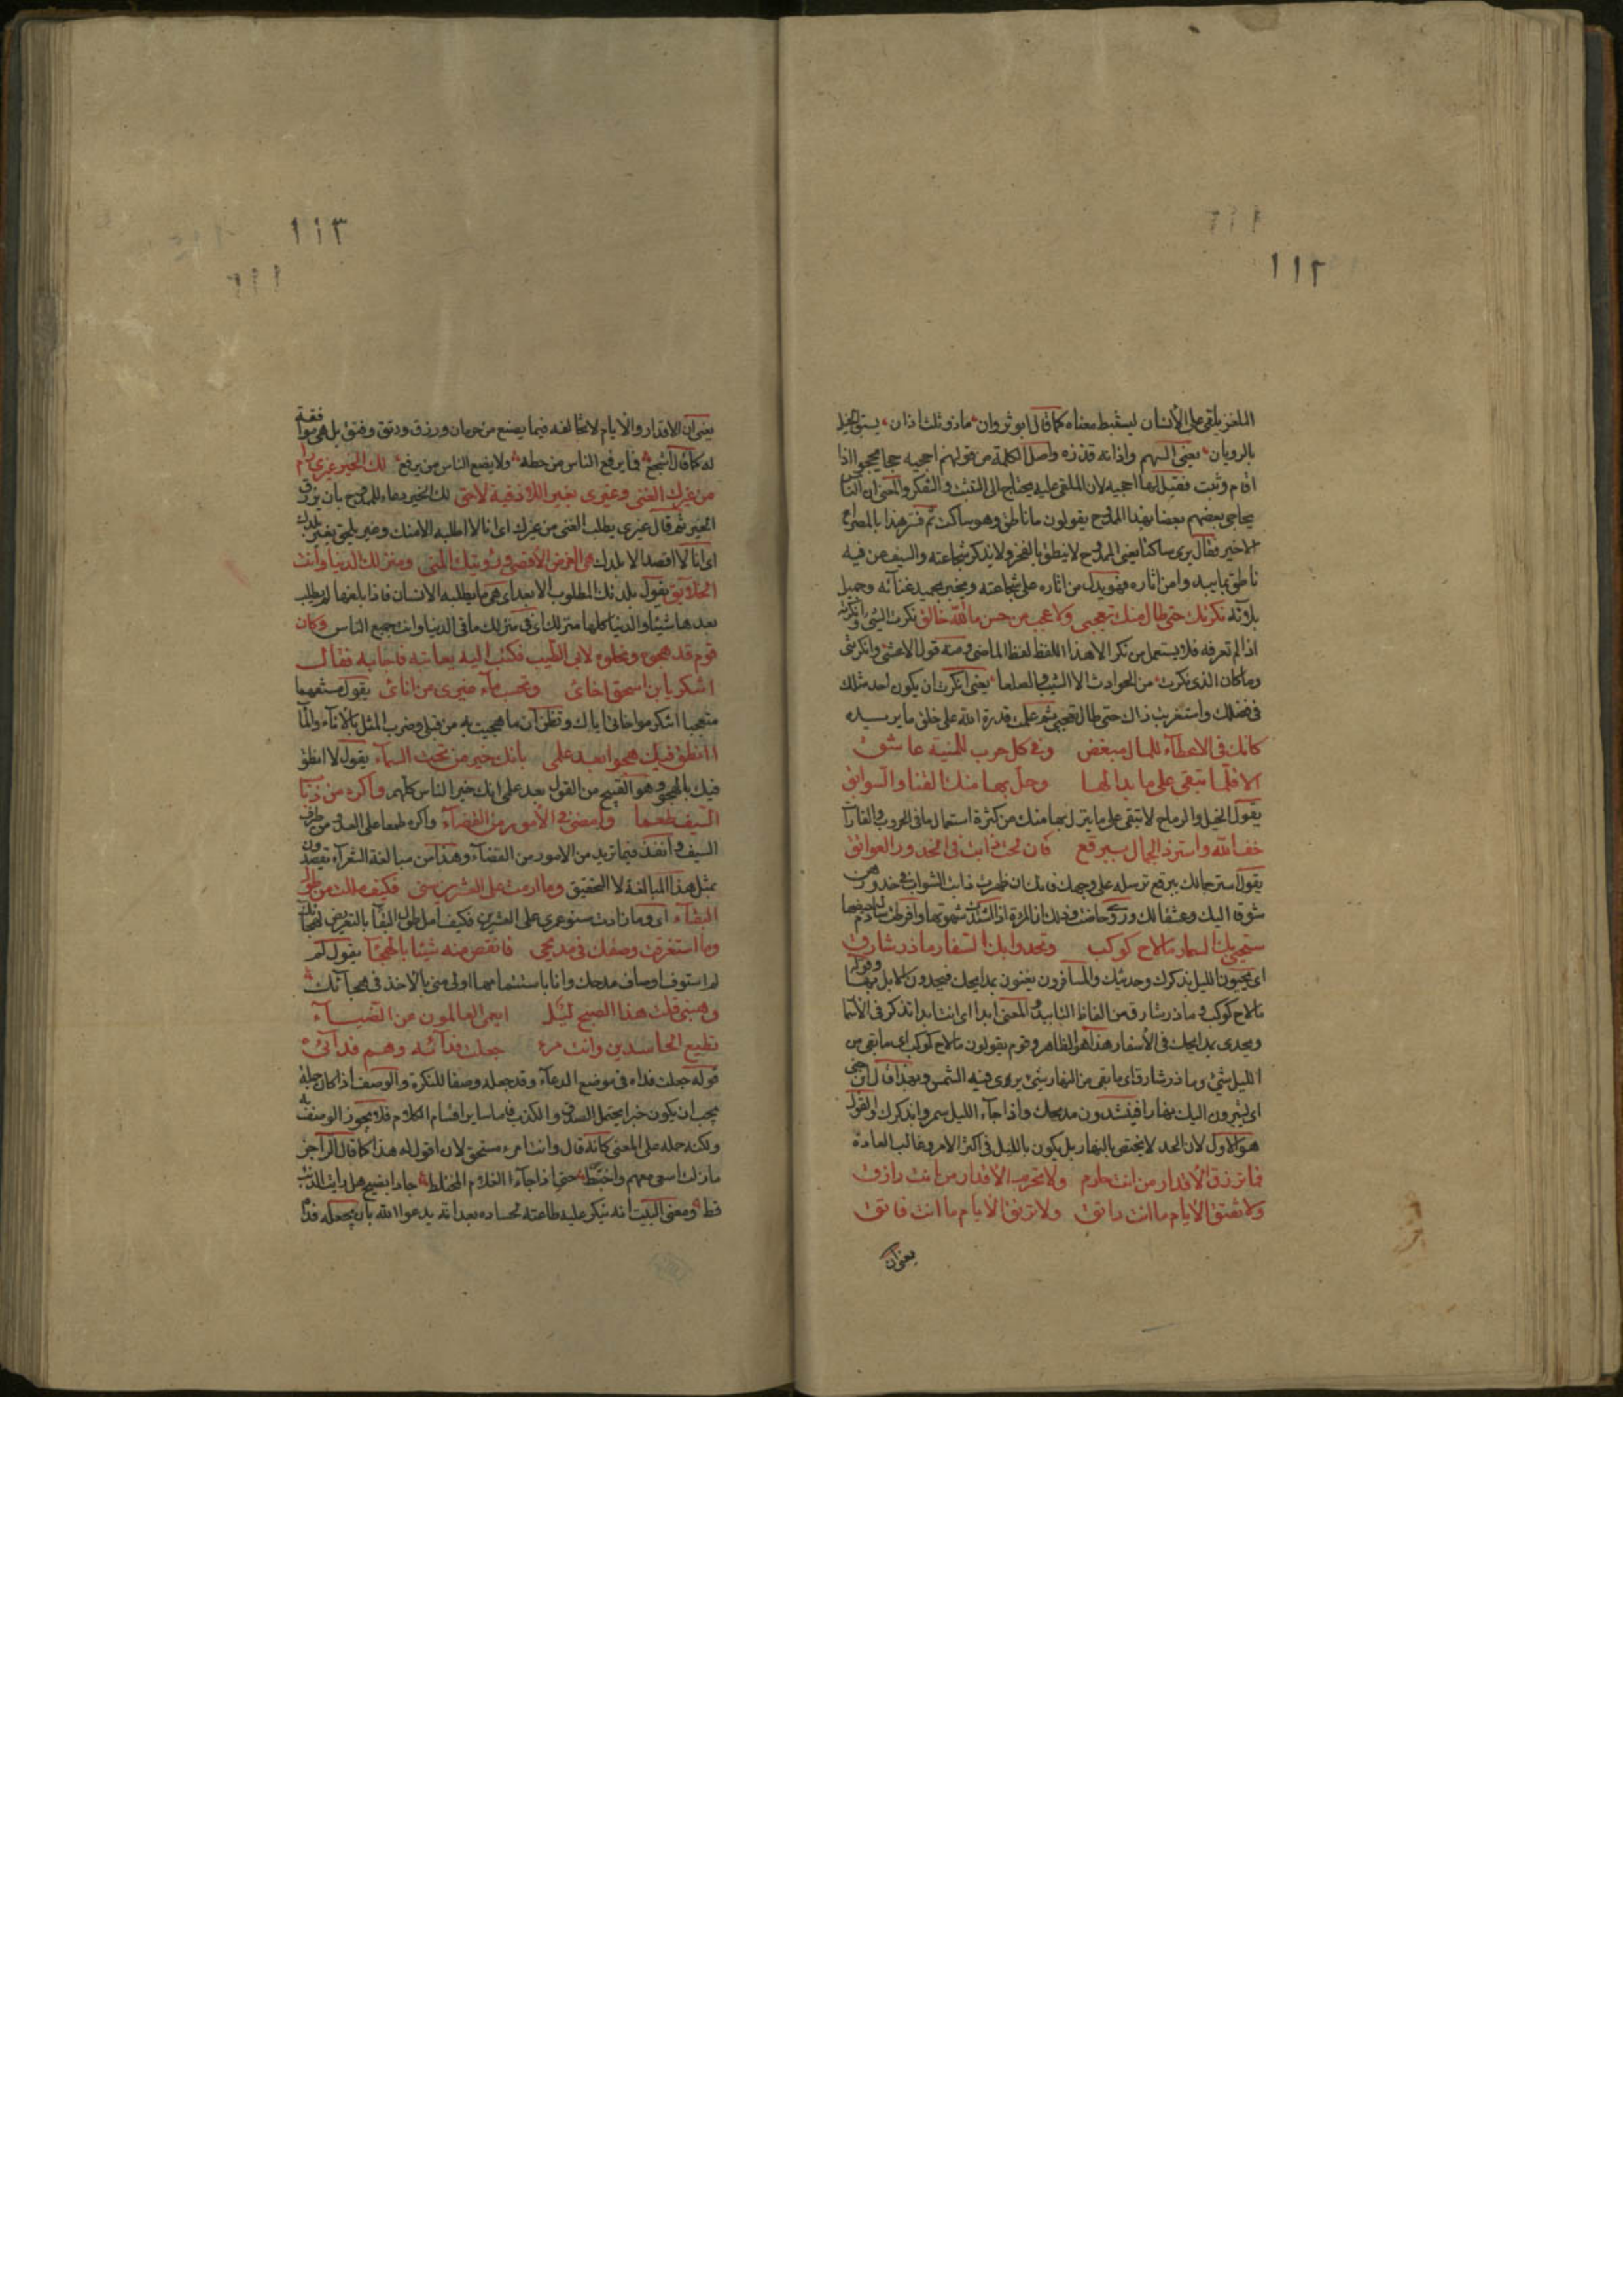 ١١٢
اللغز يلقى على الانسان ليستنبط معناه كما قال ابو ثروان ماذو ثلث اذان يسبق الخيل
بالرديان يعنى السهم واذانه قذذه واصل الكلمة من قولهم احجيه حجا يحجوا اذا
اقام وثبت فقيل لها احجيه لان الملقى عليه يحتاج الى التثبت والتفكر والمعنى ان الناس
يحاجى بعضهم بعضا بهذا الممدوح يقولون ما ناطق وهو ساكت ثم فسر هذا بالمصراع
الاخير فقال يرى ساكتا يعنى الممدوح لا ينطق بالفخر ولا يذكر شجاعته والسيف عن فيه
ناطق بما يبيد وامن اثاره فهو يدل من اثاره على شجاعته ويخبر بحميد غنائه وجميل
بلائه نكرتك حتى طال منك تعجبى ولا عجب من حسن ما الله خالق نكرت الشئ وانكرته
اذا لم تعرفه فلا يستعمل من نكر الا هذا اللفظ لفظ الماضى ومنه قول الاعشى وانكرتنى
وما كان الذى نكرت من الحوادث الا الشيب والصلعا يعنى انكرت ان يكون احد مثلك
فى فضلك واستغربت ذاك حتى طال تعجبى ثم علمت قدرة الله على خلق ما يريده
كانك فى الاعطاء للمال مبغض وفى كل حرب للمنية عاشق
الا قلما تبقى على ما بدا لها وحل بها منك القنا والسوابق
يقول الخيل والرماح لا تبقى على ما ينزل بها منك من كثرة استعمالها فى الحروب والغارات
خف الله واستر ذا الجمال ببرقع فان لحت ذابت فى الخدور العواتق
يقول استر جمالك ببرقع ترسله على وجهك فانك ان ظهرت ذابت الشواب فى خدورهن
شوقا اليك وعشقا لك وروى حاضت وذلك ان المراة اذا اشتدت شهوتها وافرطت سال دم حيضها
ستحيى بك السمار ما لاح كوكب وتحدوا بك السفار ما ذر شارق
اى يحيون الليل بذكرك وحديثك والمسافرون يغنون بمدايحك فيحدون الابل بها وقوله
ما لاح كوكب وما ذر شارق من الفاظ التابيد والمعنى ابدا اى انت ابدا تذكر فى الاسمار
ويحدى بمدايحك فى الاسفار هذا هو الظاهر وقوم يقولون ما لاح كوكب اى ما بقى من
الليل شئ وما ذر شارق اى ما بقى من النهار شئ يرى فيه الشمس وبهذا قال ابن جنى
اى يسيرون اليك نهارا فينشدون مديحك واذا جاء الليل سمروا بذكرك والقول
هو الاول لان الحد لا يختص بالنهار بل يكون بالليل فى اكثر الامر وغالب العادة
فما ترزق الاقدار من انت حارم ولا تحرم الاقدار من انت رازق
ولا تفتق الايام ما انت راتق ولا ترتق الايام ما انت فاتق
يعنى ان
١١٣
يعنى ان الاقدار والايام لا تخالفه فيما يصنع من حرمان ورزق ورتق وفتق بل هى موافقة
له كما قال اشجع فما يرفع الناس من حطه ولا يضع الناس من يرفع لك الخير غيرى رام
من غيرك الغنى وغيرى بغير اللاذقية لاحق لك الخير دعاء للممدوح بان يرزق
الخير ثم قال غيرى يطلب الغنى من غيرك اى انا لا اطلبه الا منك وغيرى يلحق بغير بلدك
اى انا لا اقصد الا بلدك هى الغرض الاقصى ورؤيتك المنى ومنزلك الدنيا وانت
الخلايق يقول بلدتك المطلوب الابعد اى هى ما يطلبه الانسان فاذا بلغها لم يطلب
بعدها شيئا والدنيا كلها منزلك اى فى منزلك ما فى الدنيا وانت جميع الناس وكان
قوم قد هجوه ونحلوه لابى الطيب فكتب اليه يعاتبه فاجابه فقال
اتنكر يا بن اسحق اخائى وتحسب ماء غيرى من انائى يقول مستفهما
متعجبا اتنكر مواخاتى اياك وتظن ان ما هجيت به من قبلى وضرب المثل بالاناء والماء
أأنطق فيك هجوا بعد علمى بانك خير من تحت السماء يقول لا انطق
فيك بالهجو وهو القبيح من القول بعد علمى انك خير الناس كلهم واكره من ذباب
السيف طعما وامضى فى الامور من القضاء واكره طعما على العدو من طرف
السيف وانفذ فيما تريد من الامور من القضاء وهذا من مبالغة الشعراء يقصدون
بمثل هذا المبالغة لا التحقيق وما اربت على العشرين سنى فكيف مللت من طول
البقاء اى وما زادت سنو عمرى على العشرين فكيف امل طول البقاء بالتعريض لهجائك
وما استغرقت وصفك فى مديحى فانقص منه شيئا بالهجاء يقول لم
لم استوف اوصاف مدحك وانا باستتمامها اولى منى بالاخذ فى هجائك
وهبنى قلت هذا الصبح ليل ايعمى العالمون عن الضياء
تطيع الحاسدين وانت مرء جعلت فداءه وهم فدائى
قوله جعلت فداه فى موضع الدعاء وقد جعله وصفا للنكرة والوصف اذا كان جملة
يجب ان يكون خبرا يحتمل الصدق والكذب فاما ساير اقسام الكلام فلا يجوز الوصف به
ولكنه حمله على المعنى كانه قال وانت امرء مستحق لان اقول له هذا كما قال الراجز
ما زلت اسعى معهم واختبط حتى اذا جاء الظلام المختلط جاوا بضيح هل رايت الذئب
قط ومعنى البيت انه ينكر عليه طاعته لحساده بعد انه يدعوا الله بان يجعله فداه